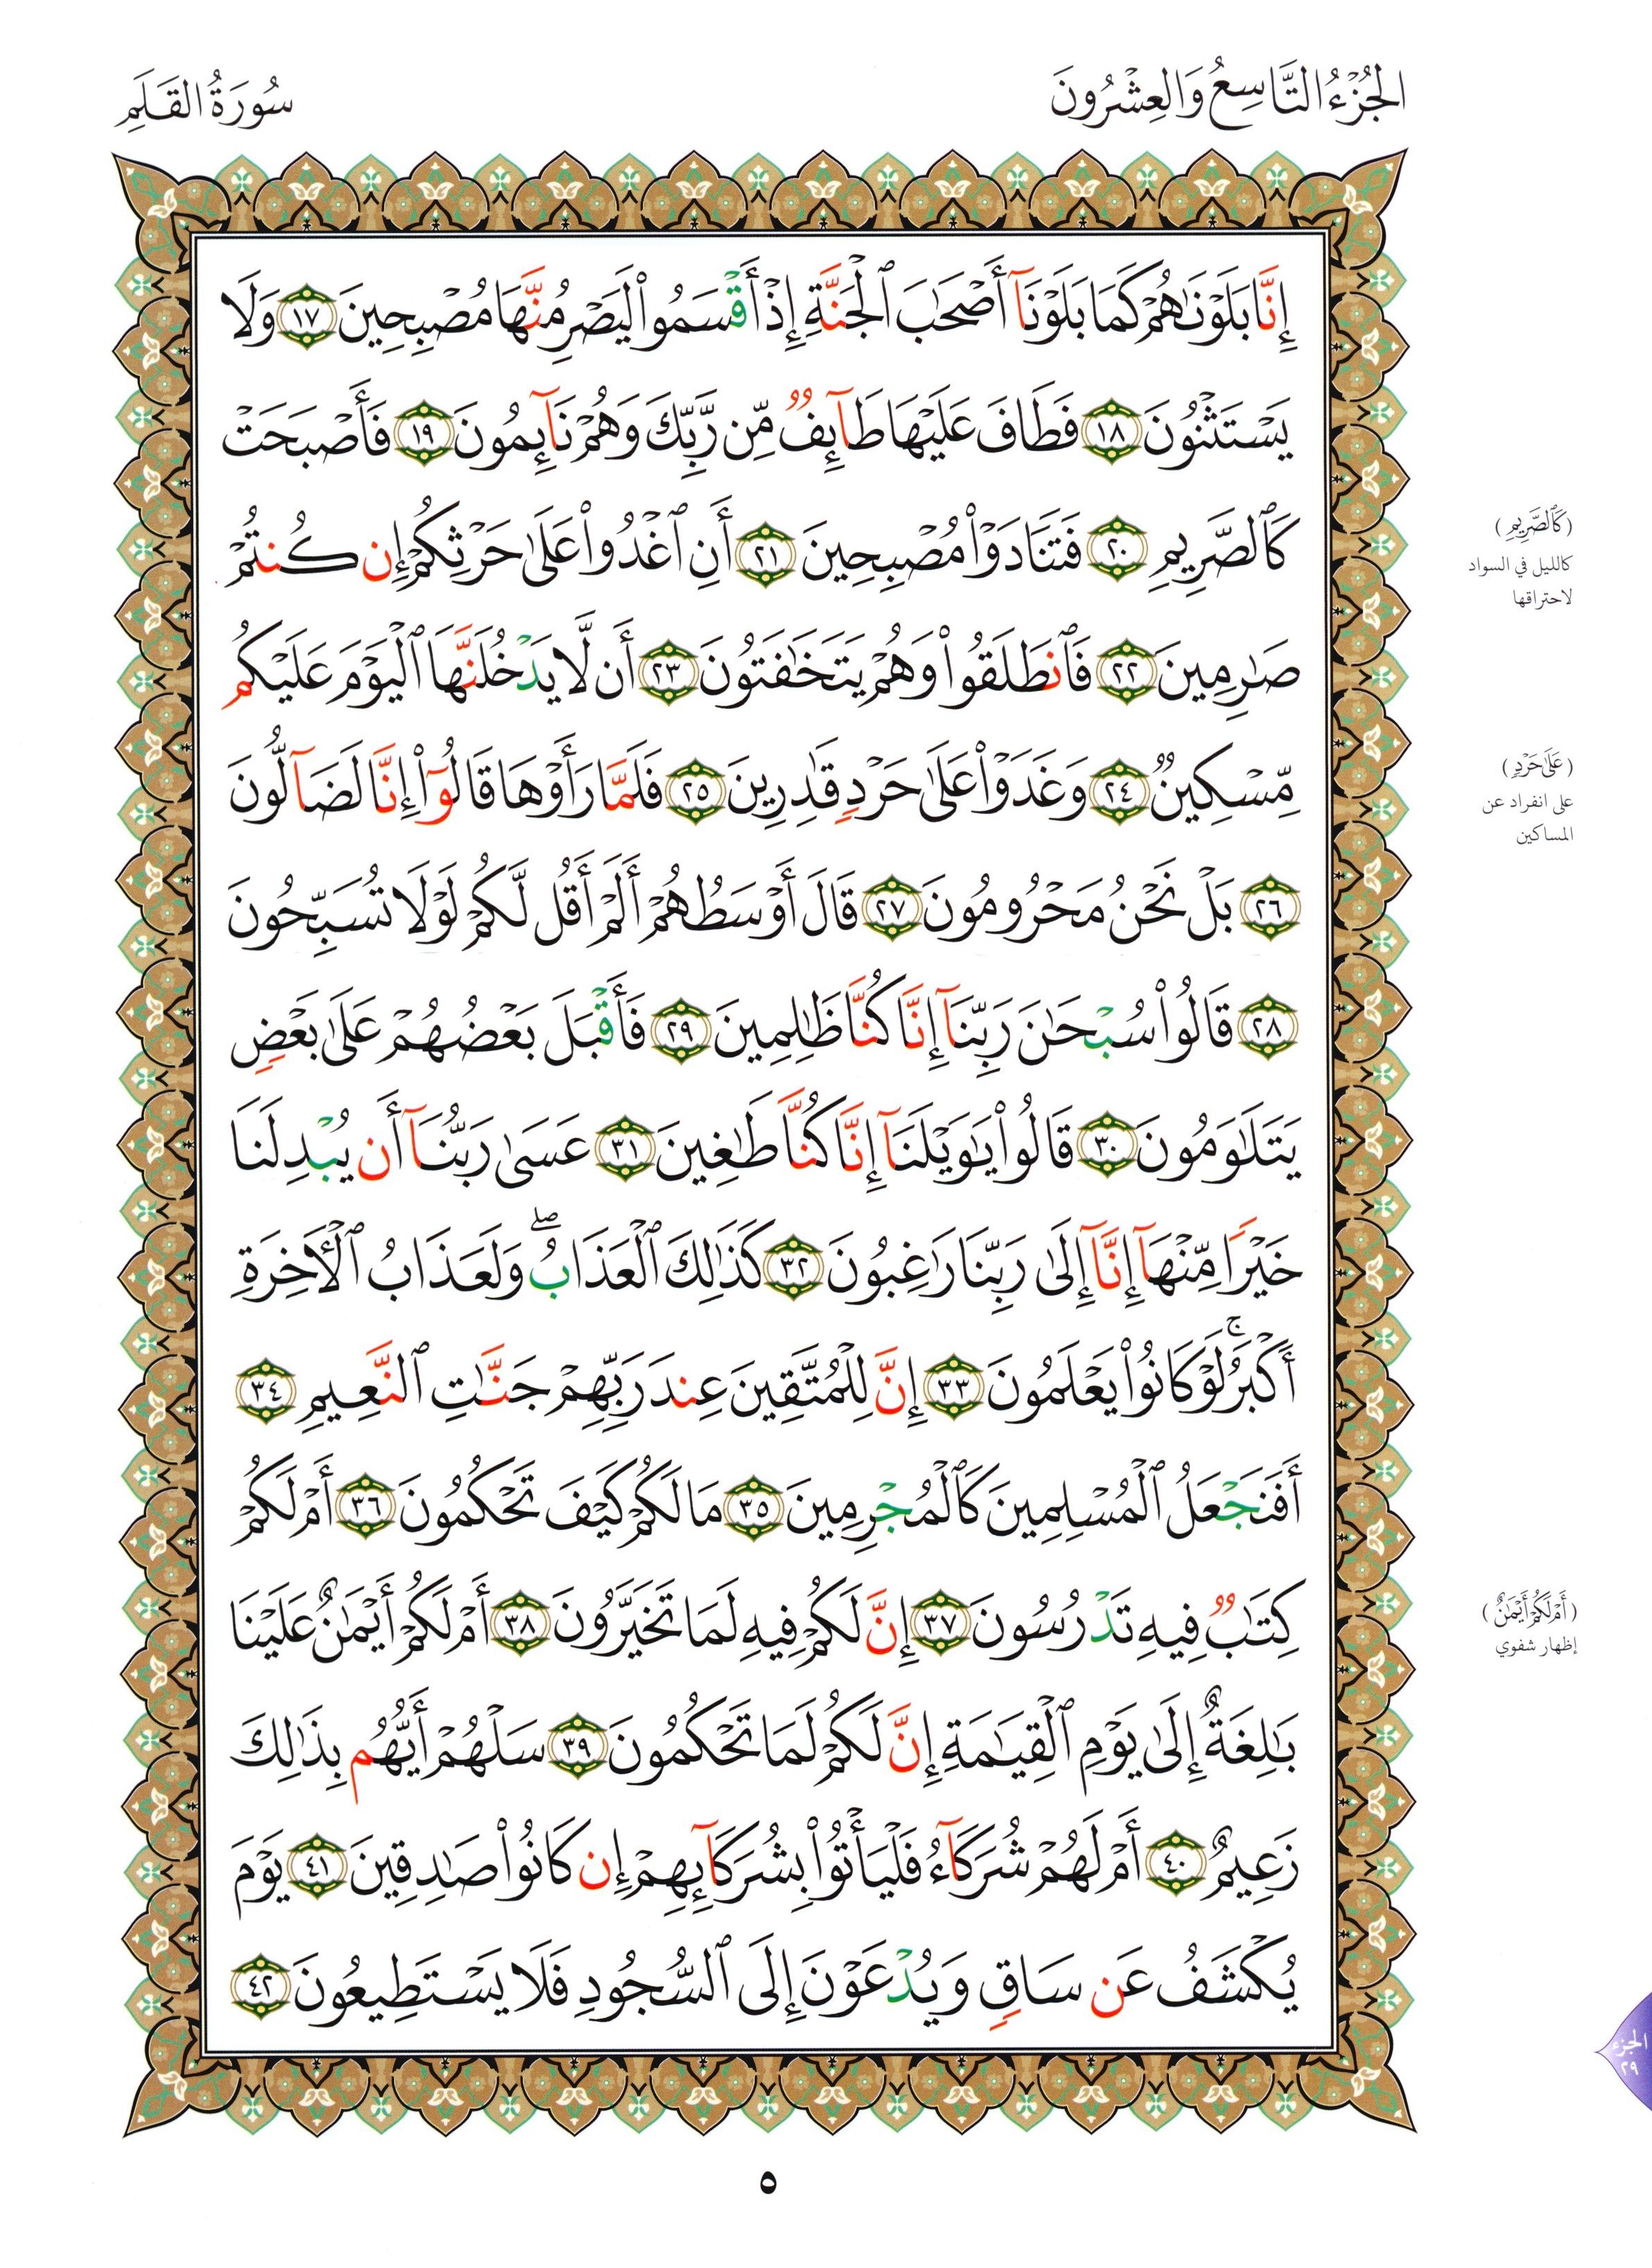 الجُزْءُ التَّاسِعُ وَالعِشْرُونَ
سُورَةُ القَلَمِ
إِنَّا بَلَوْنَٰهُمْ كَمَا بَلَوْنَآ أَصْحَٰبَ ٱلْجَنَّةِ إِذْ أَقْسَمُوا۟ لَيَصْرِمُنَّهَا مُصْبِحِينَ ١٧ وَلَا
يَسْتَثْنُونَ ١٨ فَطَافَ عَلَيْهَا طَآئِفٌ مِّن رَّبِّكَ وَهُمْ نَآئِمُونَ ١٩ فَأَصْبَحَتْ
كَٱلصَّرِيمِ ٢٠ فَتَنَادَوْا۟ مُصْبِحِينَ ٢١ أَنِ ٱغْدُوا۟ عَلَىٰ حَرْثِكُمْ إِن كُنتُمْ
صَٰرِمِينَ ٢٢ فَٱنطَلَقُوا۟ وَهُمْ يَتَخَٰفَتُونَ ٢٣ أَن لَّا يَدْخُلَنَّهَا ٱلْيَوْمَ عَلَيْكُم
مِّسْكِينٌ ٢٤ وَغَدَوْا۟ عَلَىٰ حَرْدٍ قَٰدِرِينَ ٢٥ فَلَمَّا رَأَوْهَا قَالُوٓا۟ إِنَّا لَضَآلُّونَ
٢٦ بَلْ نَحْنُ مَحْرُومُونَ ٢٧ قَالَ أَوْسَطُهُمْ أَلَمْ أَقُل لَّكُمْ لَوْلَا تُسَبِّحُونَ
٢٨ قَالُوا۟ سُبْحَٰنَ رَبِّنَآ إِنَّا كُنَّا ظَٰلِمِينَ ٢٩ فَأَقْبَلَ بَعْضُهُمْ عَلَىٰ بَعْضٍ
يَتَلَٰوَمُونَ ٣٠ قَالُوا۟ يَٰوَيْلَنَآ إِنَّا كُنَّا طَٰغِينَ ٣١ عَسَىٰ رَبُّنَآ أَن يُبْدِلَنَا
خَيْرًا مِّنْهَآ إِنَّآ إِلَىٰ رَبِّنَا رَٰغِبُونَ ٣٢ كَذَٰلِكَ ٱلْعَذَابُ ۖ وَلَعَذَابُ ٱلْءَاخِرَةِ
أَكْبَرُ ۚ لَوْ كَانُوا۟ يَعْلَمُونَ ٣٣ إِنَّ لِلْمُتَّقِينَ عِندَ رَبِّهِمْ جَنَّٰتِ ٱلنَّعِيمِ ٣٤
أَفَنَجْعَلُ ٱلْمُسْلِمِينَ كَٱلْمُجْرِمِينَ ٣٥ مَا لَكُمْ كَيْفَ تَحْكُمُونَ ٣٦ أَمْ لَكُمْ
كِتَٰبٌ فِيهِ تَدْرُسُونَ ٣٧ إِنَّ لَكُمْ فِيهِ لَمَا تَخَيَّرُونَ ٣٨ أَمْ لَكُمْ أَيْمَٰنٌ عَلَيْنَا
بَٰلِغَةٌ إِلَىٰ يَوْمِ ٱلْقِيَٰمَةِ إِنَّ لَكُمْ لَمَا تَحْكُمُونَ ٣٩ سَلْهُمْ أَيُّهُم بِذَٰلِكَ
زَعِيمٌ ٤٠ أَمْ لَهُمْ شُرَكَآءُ فَلْيَأْتُوا۟ بِشُرَكَآئِهِمْ إِن كَانُوا۟ صَٰدِقِينَ ٤١ يَوْمَ
يُكْشَفُ عَن سَاقٍ وَيُدْعَوْنَ إِلَى ٱلسُّجُودِ فَلَا يَسْتَطِيعُونَ ٤٢
(كَٱلصَّرِيمِ)
كالليل في السواد
لاحتراقها
(عَلَىٰ حَرْدٍ)
على انفراد عن
المساكين
(أَمْ لَكُمْ أَيْمَٰنٌ)
إظهار شفوي
الجزء
٢٩
٥